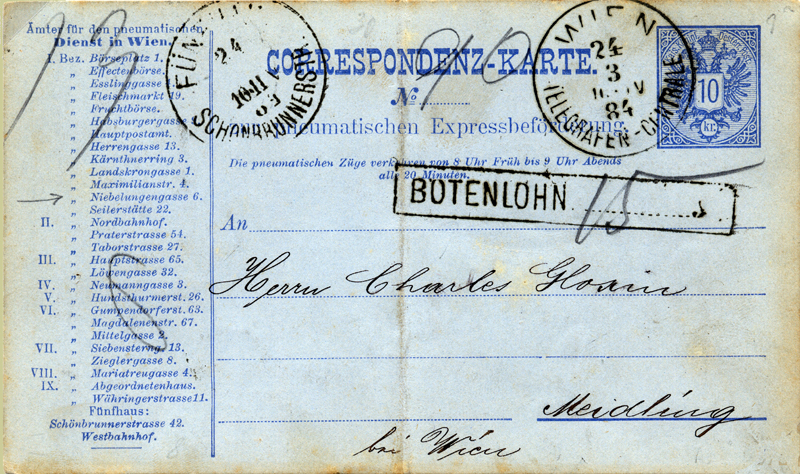 Ämter für den pneumatischen
Dienst in Wien.
I. Bez. Börseplatz 1.
„ Effectenbörse.
„ Esslinggasse
„ Fleischmarkt 19.
„ Fruchtbörse.
„ Habsburgergasse
„ Hauptpostamt.
„ Herrengasse 13.
„ Kärnthnerring 3.
„ Landskrongasse 1.
„ Maximilianstr. 4.
„ Niebelungengasse 6.
„ Seilerstätte 22.
II. „ Nordbahnhof.
„ Praterstrasse 54.
„ Taborstrasse 27.
III. „ Hauptstrasse 65.
„ Löwengasse 32.
IV. „ Neumanngasse 3.
V. „ Hundsthurmerst. 26.
VI. „ Gumpendorferst. 63.
„ Magdalenenstr. 67.
„ Mittelgasse 2.
VII. „ Siebensterng. 13.
„ Zieglergasse 8.
VIII. „ Mariatreugasse 4.
IX. „ Abgeordnetenhaus.
„ Währingerstrasse 11.
Fünfhaus:
Schönbrunnerstrasse 42.
Westbahnhof.
24
10-11 V
84
SCHÖNBRUNNERSTR.
CORRESPONDENZ-KARTE.
No
pneumatischen Expressbeförderung.
Die pneumatischen Züge verkehren von 8 Uhr Früh bis 9 Uhr Abends
alle 20 Minuten.
WIEN
24
3
84
TELEGRAFEN-CENTRALE
10
KR.
BOTENLOHN 15
An
Herrn Charles
Meidling
bei Wien